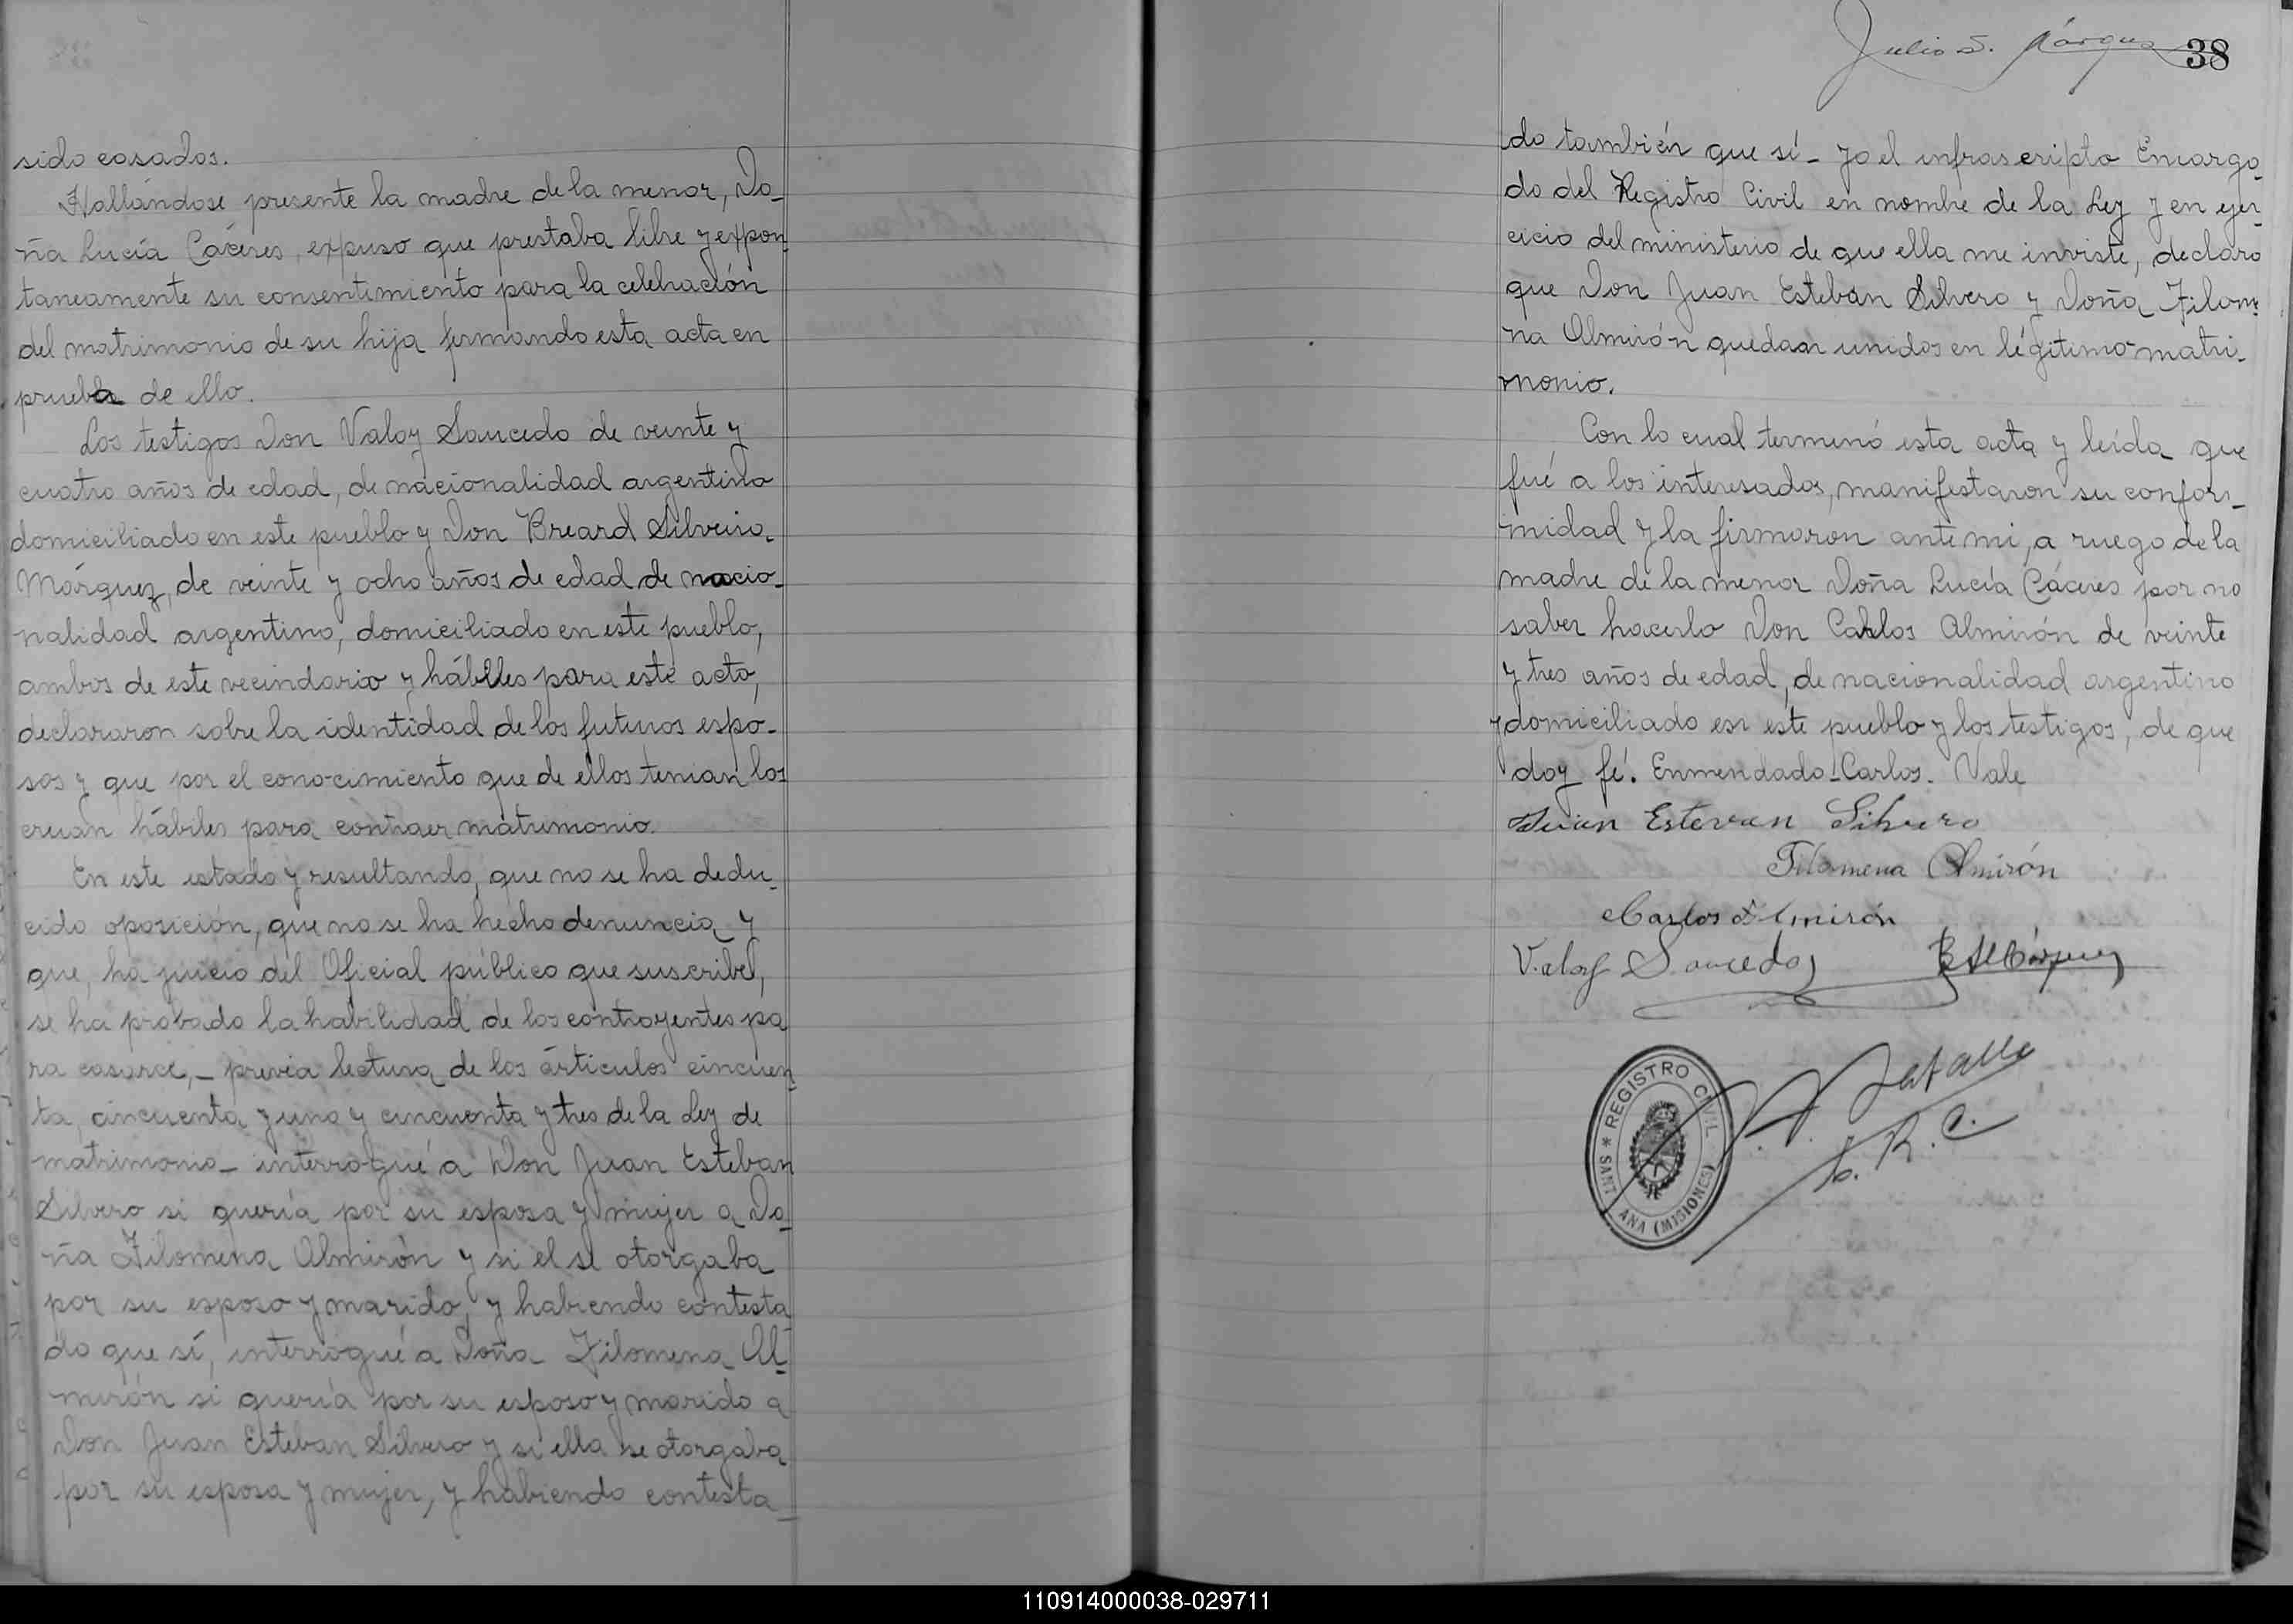 sido casados.
Hallándose presente la madre de la menor, Do_
ña Lucía Cáceres, expuso que prestaba libre y expon_
taneamente su consentimiento para la celebración
del matrimonio de su hija firmando esta acta en
prueba de ello.
Los testigos Don Valoy Saucedo de veinte y
cuatro años de edad, de nacionalidad argentino
domiciliado en este pueblo y Don Breard Silverio
Márquez, de veinte y ocho años de edad de nacio_
nalidad argentino, domiciliado en este pueblo,
ambos de este vecindario y hábiles para este acto,
declararon sobre la identidad de los futuros espo_
sos y que por el conocimiento que de ellos tenian los
creian hábiles para contraer matrimonio.
En este estado y resultando, que no se ha dedu_
cido oposición, que no se ha hecho denuncia y
que, ha juicio del Oficial público que suscribe,
se ha probado la habilidad de los contrayentes pa
ra casarce,_ previa lectura de los árticulos cincuen_
ta, cincuenta y uno y cincuenta y tres de la Ley de
matrimonio_ interrogué a Don Juan Esteban
Silvero si quería por su esposa y mujer a Do_
ña Filomena Almirón y si el se otorgaba
por su esposo y marido, y habiendo contesta_
do que sí, interrogué a Doña Filomena Al_
mirón si quería por su esposo y marido a
Don Juan Esteban Silvero y si ella se otorgaba
por su esposa y mujer, y habiendo contesta_
Julio S. Márquez 38
do también que sí_ yo el infrascripto Encarga_
do del Registro Civil en nombre de la Ley y en ejer_
cicio del ministerio de que ella me inviste, declaro
que Don Juan Esteban Silvero y Doña Filome
na Almirón quedan unidos en légitimo matri_
monio.
Con lo cual terminó esta acta y leída que
fué a los interesados, manifestaron su confor_
midad y la firmaron ante mi, a ruego de la
madre de la menor Doña Lucía Cáceres por no
saber hacerlo Don Carlos Almirón de veinte
y tres años de edad, de nacionalidad argentino
y domiciliado en este pueblo y los testigos, de que
doy fé. Enmendado_Carlos. Vale
Juan Estevan Silvero
Filomena Almirón
Carlos Almirón
Valoy Saucedo B S Márquez
REGISTRO CIVIL
* SANTA ANA (MISIONES)
E. R. C.
110914000038-029711